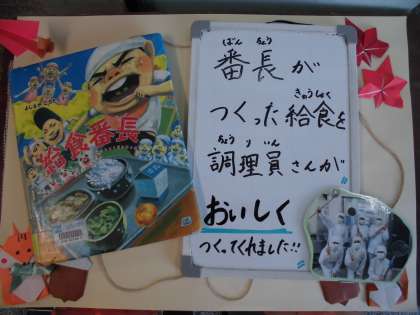 よしながこうたく
給食番長
ばん ちょう
番長が
きゅうしょく
つくった給食を
ちょう り いん
調理員さんが
おいしく
つくってくれました!!